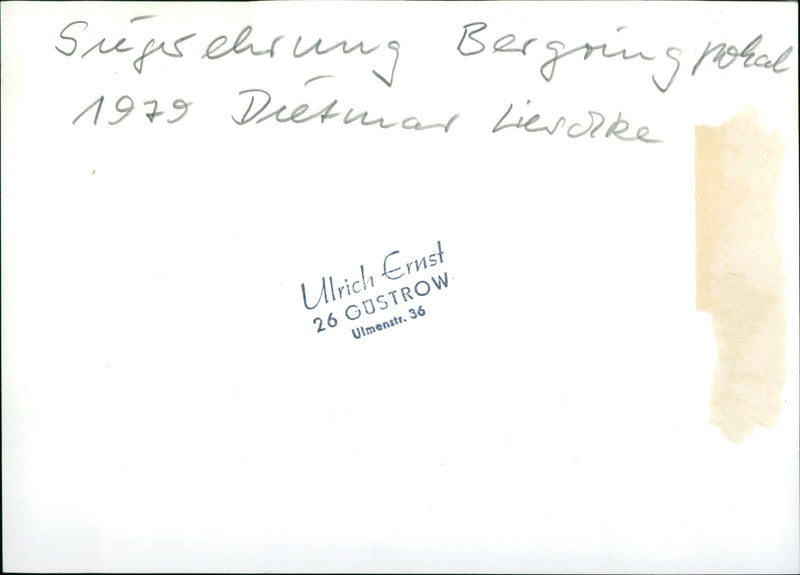 Siegerehrung Bergringpokal
1979 Dietmar Lieschke
Ulrich Ernst
26 GÜSTROW
Ulmenstr. 36